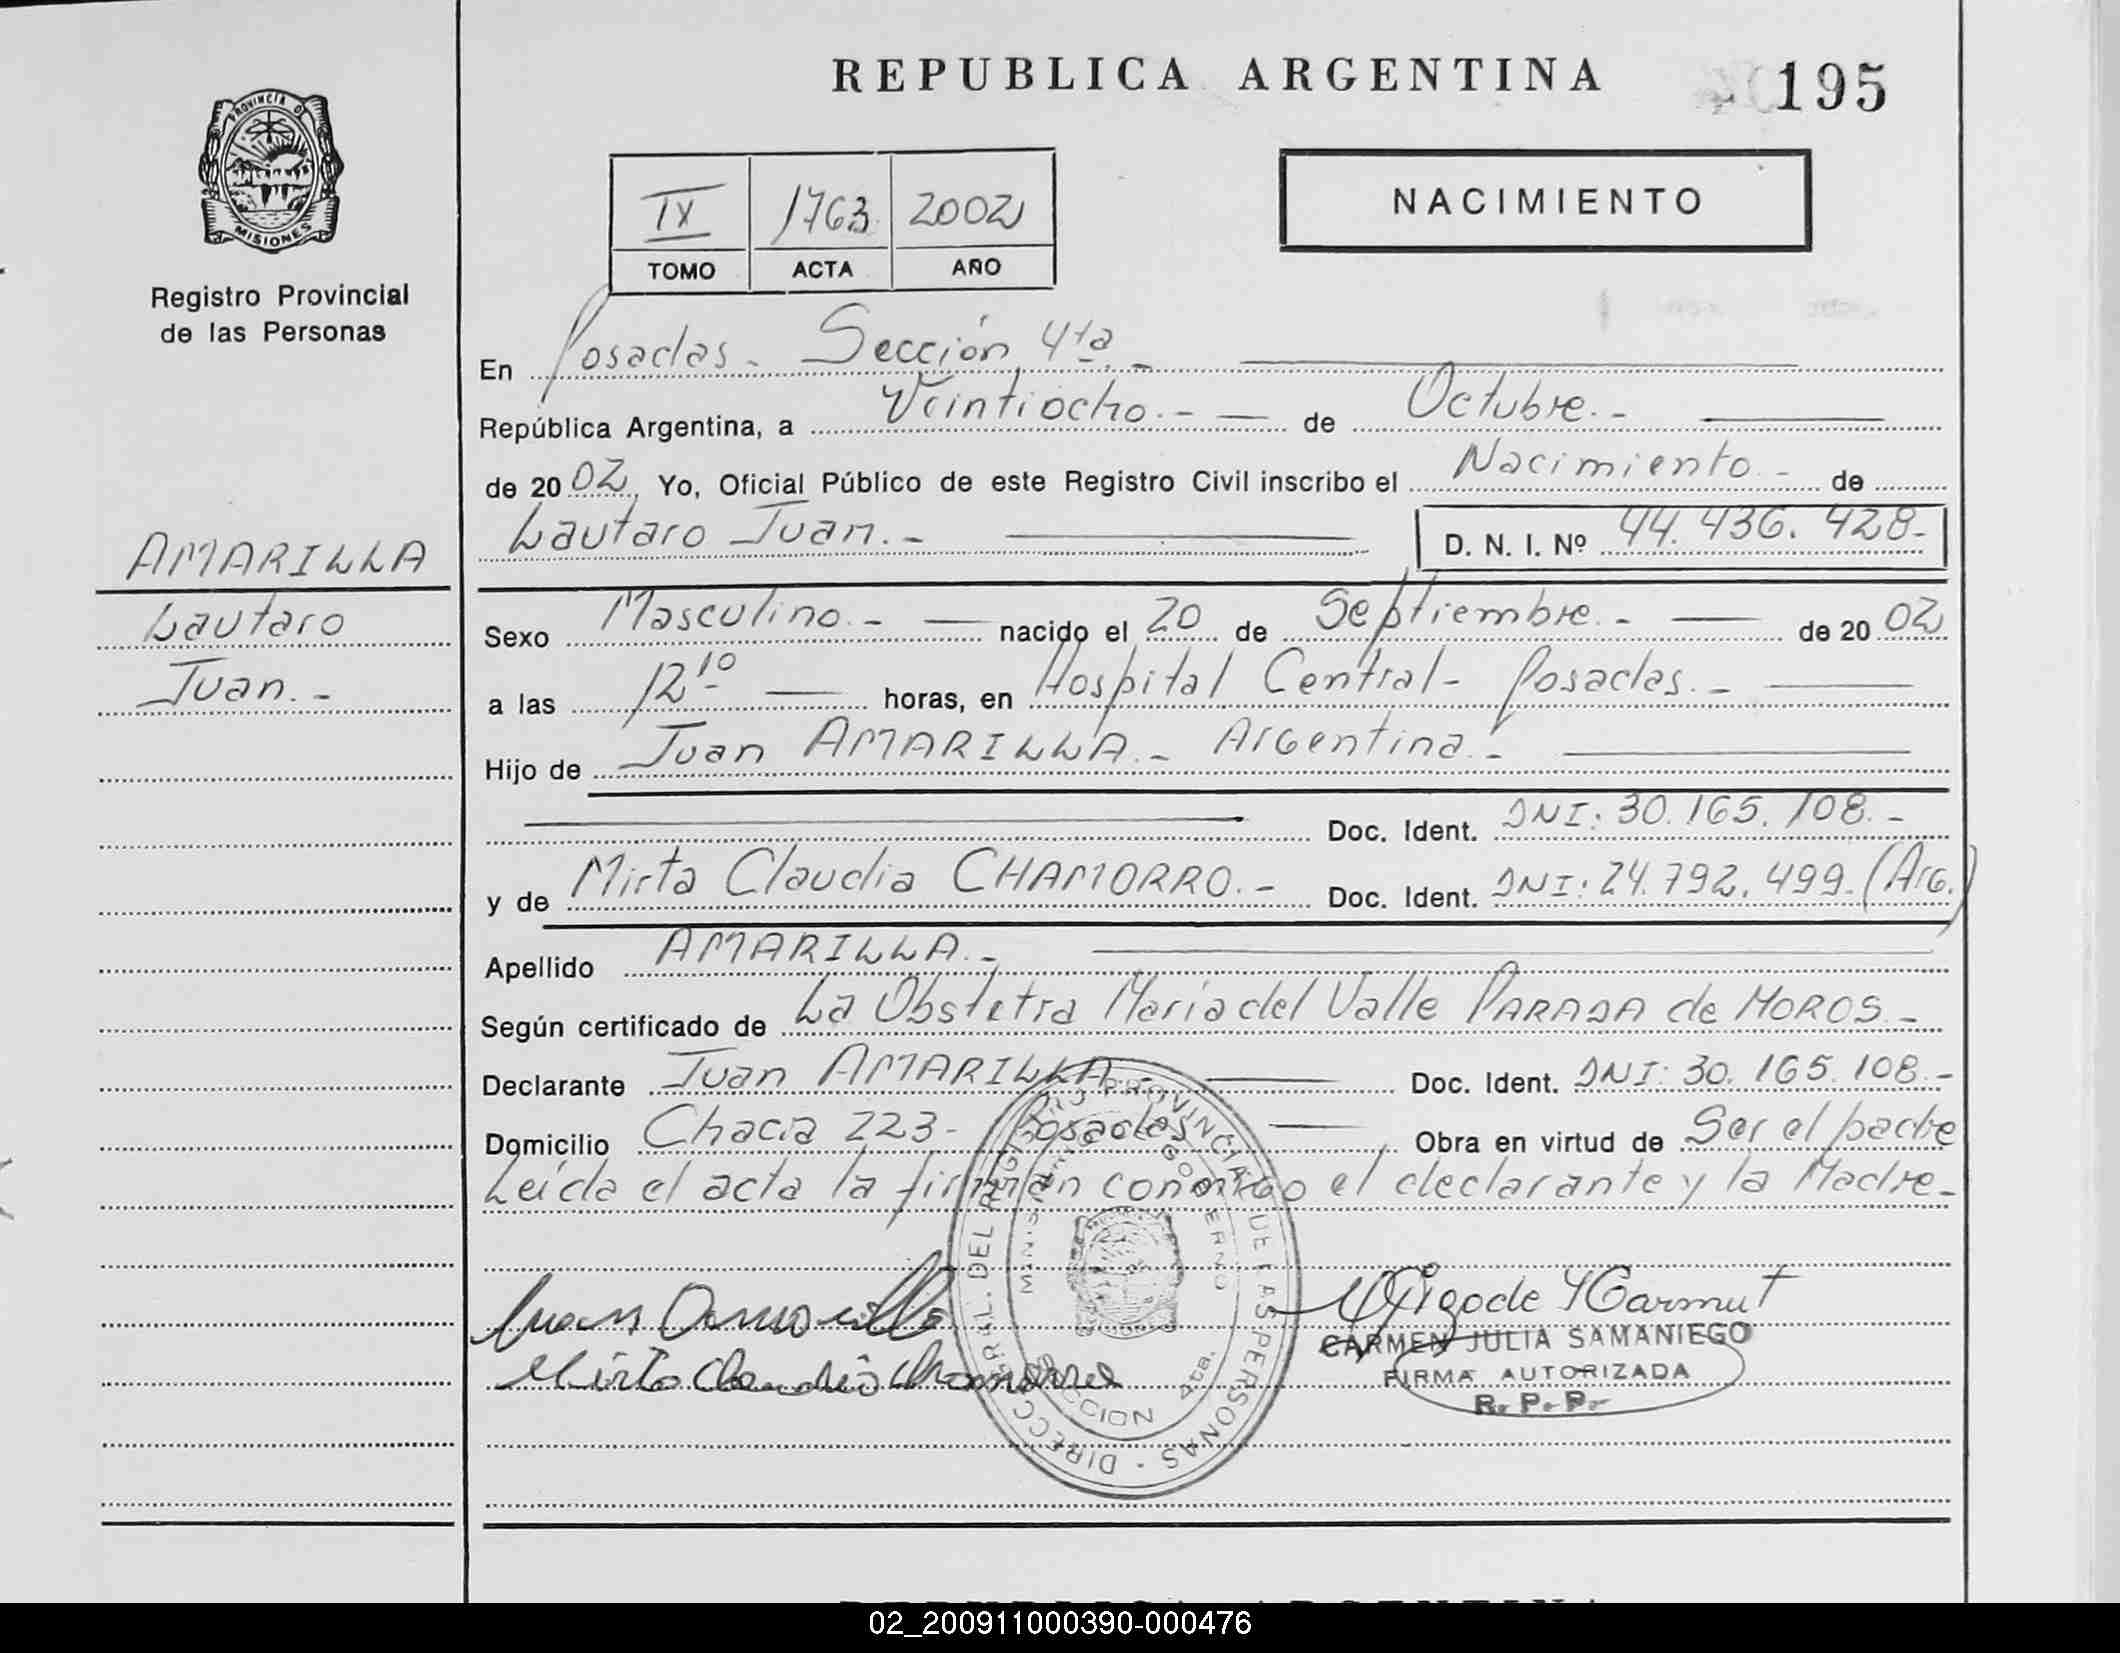 REPUBLICA ARGENTINA
195
PROVINCIA DE
MISIONES
Registro Provincial
de las Personas
IX 1763 2002
TOMO ACTA AÑO
NACIMIENTO
En Posadas.- Sección 4ta.-
República Argentina, a Veintiocho.- de Octubre.-
de 2002, Yo, Oficial Público de este Registro Civil inscribo el Nacimiento.- de
Lautaro Juan.- D. N. I. Nº 44.436.428-
AMARILLA
Lautaro
Juan.-
Sexo Masculino.- nacido el 20 de Septiembre.- de 2002
a las 12 10 horas, en Hospital Central- Posadas.-
Hijo de Juan AMARILLA.- Argentina.-
Doc. Ident. DNI: 30.165.108.-
y de Mirta Claudia CHAMORRO.- Doc. Ident. DNI: 24.792.499.(Arg.)
Apellido AMARILLA.-
Según certificado de La Obstetra María del Valle PARADA de MOROS.-
Declarante Juan AMARILLA.- Doc. Ident. DNI: 30.165.108.-
Domicilio Chacra 223- Posadas Obra en virtud de Ser el padre
Leída el acta la firman conmigo el declarante y la Madre.-
DIRECC. GRAL. DEL REGISTRO PROVINCIAL DE LAS PERSONAS -
MINISTERIO GOBIERNO
SECCION 4ta.
Juan Amarilla
Mirta Claudia Chamorro
CARMEN JULIA SAMANIEGO
FIRMA AUTORIZADA
R. P. P.
REPUBLICA ARGENTINA
02_200911000390-000476